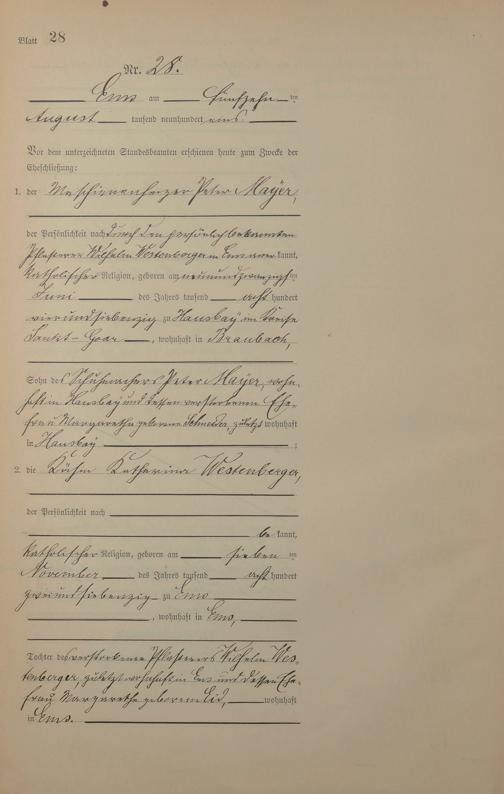 Blatt 28
Nr. 28.
Ems am fünfzehn ten
August tausend neunhundert eins
Vor dem unterzeichneten Standesbeamten erschienen heute zum Zwecke der
Eheschließung:
1. der Maschinenheizer Peter Mayer,
der Persönlichkeit nach durch den persönlich bekannten
Pflasterer Wilhelm Westenberger in Ems anerkannt,
katholischer Religion, geboren am neunundzwanzigsten
Juni des Jahres tausend acht hundert
vierundsiebenzig zu Hausbay im Kreise
Sankt-Goar, wohnhaft in Braubach,
Sohn des Schuhmachers Peter Mayer, wohn-
haft in Hausbay und dessen verstorbenen Ehe-
frau Margaretha geborene Schneider, zuletzt wohnhaft
in Hausbay;
2. die Katharina Westenberger,
der Persönlichkeit nach
be kannt,
katholischer Religion, geboren am sieben ten
November des Jahres tausend acht hundert
zweiundsiebenzig zu Ems
, wohnhaft in Ems,
Tochter des verstorbenen Pflasterers Wilhelm Wes-
tenberger, zuletzt wohnhaft in Ems und dessen Ehe-
frau Margarethe geborene Eid, wohnhaft
in Ems.